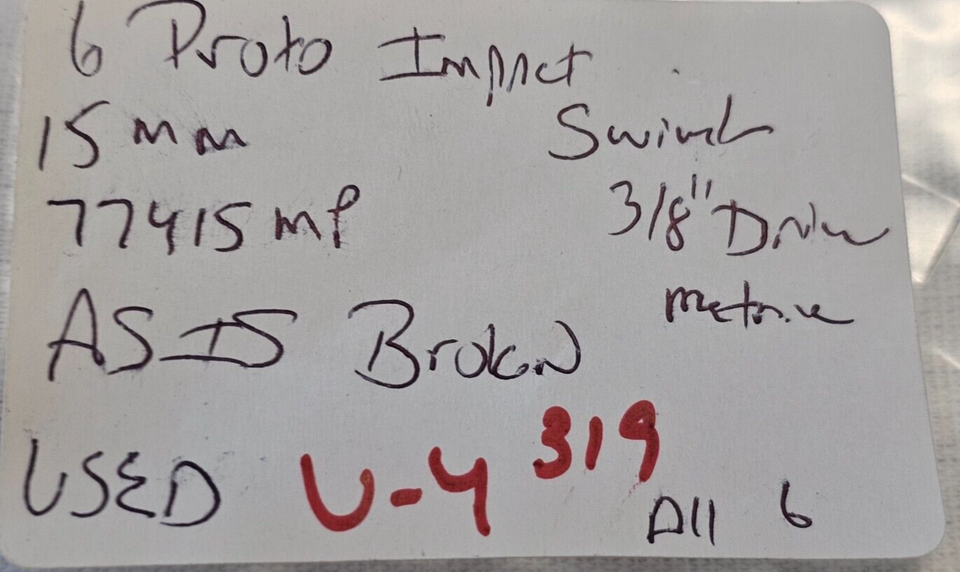 6 Proto Impact
15 mm Swivel
77415 mp 3/8" Drive
Metric
AS IS Broken
USED U-4 319
All 6